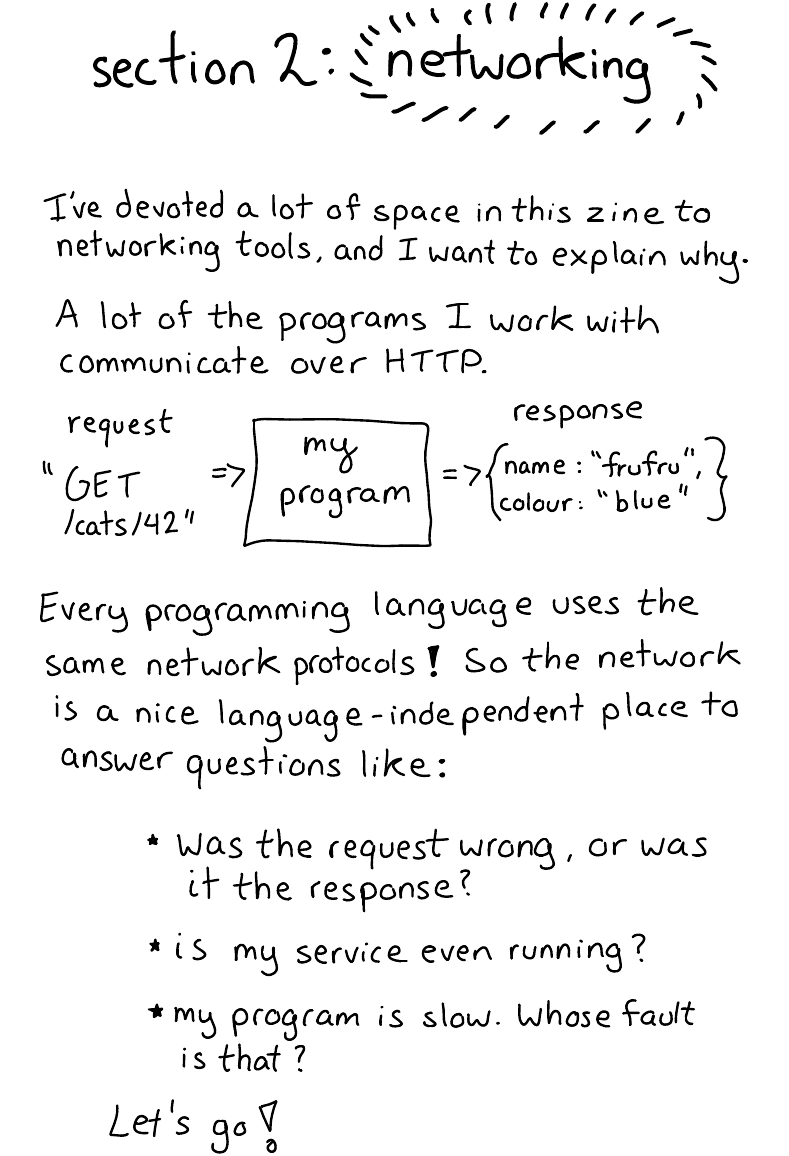 section 2: networking
I've devoted a lot of space in this zine to
networking tools, and I want to explain why.
A lot of the programs I work with
communicate over HTTP.
request
"GET
/cats/42"
=>
my
program
=>
response
{name: "frufru",
colour: "blue"}
Every programming language uses the
same network protocols! So the network
is a nice language-independent place to
answer questions like:
* was the request wrong, or was
it the response?
* is my service even running?
* my program is slow. Whose fault
is that?
Let's go!